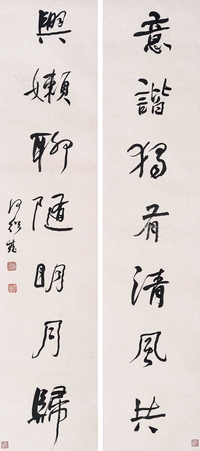 意諧獨有清風共
興嬾聊隨明月歸
何紹基